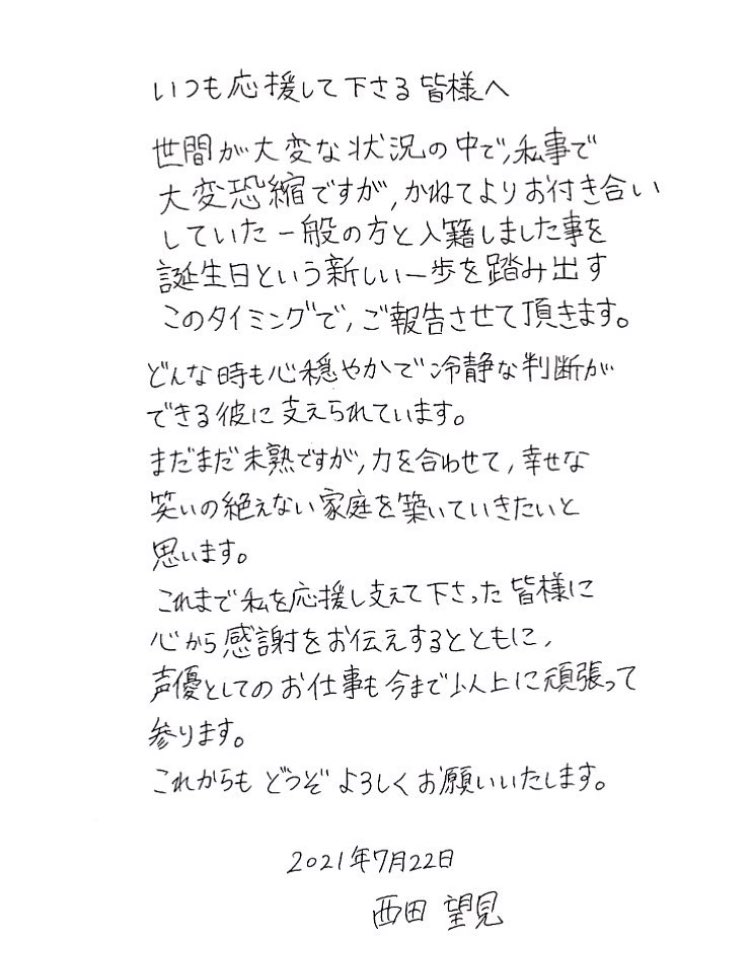 いつも応援して下さる皆様へ
世間が大変な状況の中で、私事で
大変恐縮ですが、かねてよりお付き合い
していた一般の方と入籍しました事を
誕生日という新しい一歩を踏み出す
このタイミングで、ご報告させて頂きます。
どんな時も心穏やかで冷静な判断が
できる彼に支えられています。
まだまだ未熟ですが、力を合わせて、幸せな
笑いの絶えない家庭を築いていきたいと
思います。
これまで私を応援し支えて下さった皆様に
心から感謝をお伝えするとともに、
声優としてのお仕事も今まで以上に頑張って
参ります。
これからもどうぞよろしくお願いいたします。
2021年7月22日
西田 望見